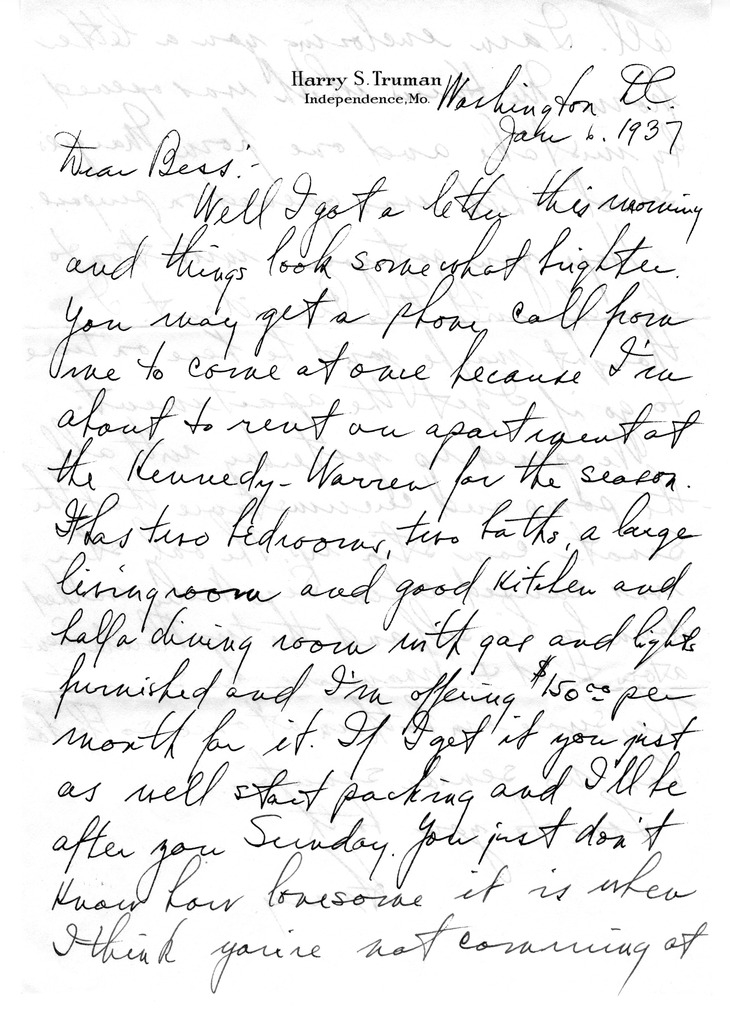 Harry S. Truman
Independence, Mo.
Washington D.C.
Jan 6. 1937
Dear Bess:-
Well I got a letter this morning
and things look somewhat brighter.
You may get a phone call from
me to come at once because I'm
about to rent an apartment at
the Kennedy-Warren for the season.
It has two bedrooms, two baths, a large
livingroom and good kitchen and
half a dining room with gas and lights
furnished and I'm offering $150.00 per
month for it. If I get it you just
as well start packing and I'll be
after you Sunday. You just don't
know how lonesome it is when
I think you're not comming at